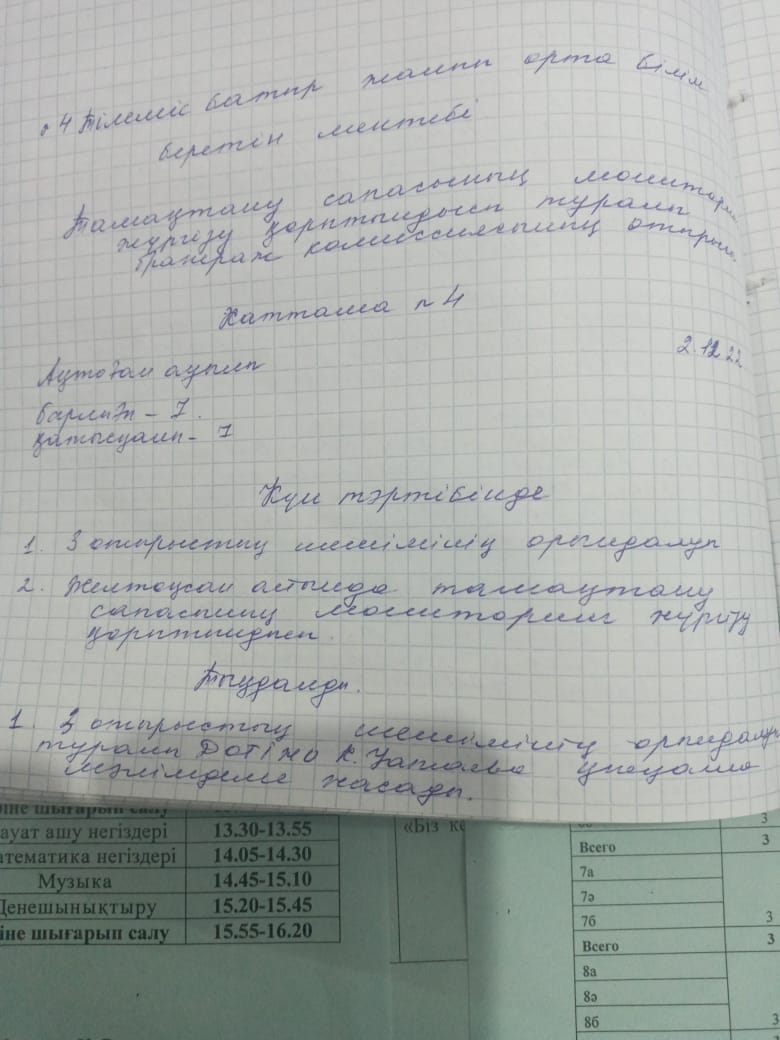 № 4 Тілеміс батыр жалпы орта білім
беретін мектебі
Тамақтану сапасының монитори
жүргізу қорытындысы туралы
бракераж комиссиясының отырыс
Хаттама № 4
2.12.22
Ақтоған ауылы
барлығы - 7.
қатысқаны - 7
Күн тәртібінде
1. 3 отырыстың шешімінің орындалуы
2. Желтоқсан айында тамақтану
сапасының мониторинг жүргізу
қорытындысы.
Тыңдалды.
1. 3 отырыстың шешімінің орындалуы
туралы ДОТІЖО К. мәлімдеме жасады.
іне шығарып салу
ауат ашу негіздері 13.30-13.55
атематика негіздері 14.05-14.30
Музыка 14.45-15.10
Денешынықтыру 15.20-15.45
іне шығарып салу 15.55-16.20
«Біз ке
3
Всего 3
7а
7ә
7б 3
Всего 3
8а
8ә
8б 3